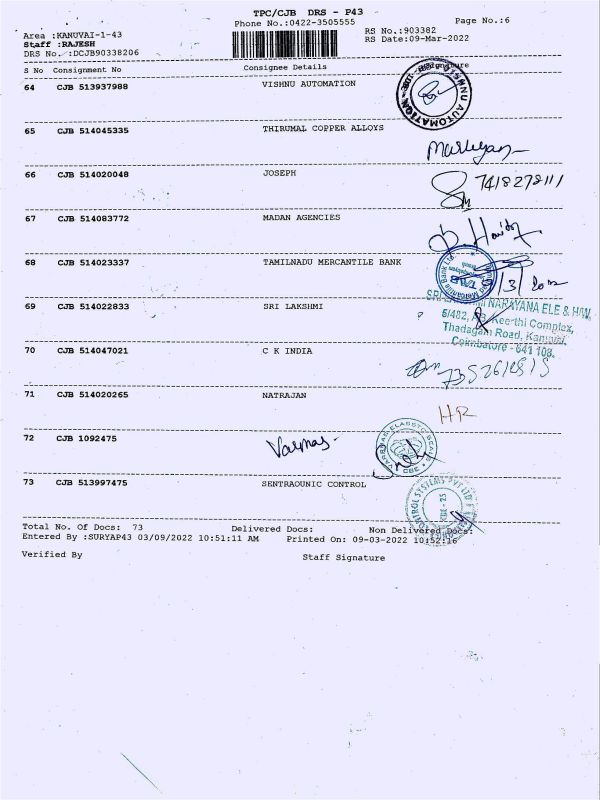 TPC/CJB DRS - P43
Phone No.:0422-3505555
Page No.:6
Area :KANUVAI-1-43
RS No.:903382
Staff :RAJESH
RS Date:09-Mar-2022
DRS No. :DCJB90338206
S No Consignment No Consignee Details Signature
64 CJB 513937988 VISHNU AUTOMATION
VISHNU AUTOMATION
65 CJB 514045335 THIRUMAL COPPER ALLOYS
66 CJB 514020048 JOSEPH
7418278111
67 CJB 514083772 MADAN AGENCIES
68 CJB 514023337 TAMILNADU MERCANTILE BANK
69 CJB 514022833 SRI LAKSHMI
NARAYANA ELE & H/W
Thadagam Road,
Coimbatore - 641 108.
70 CJB 514047021 C K INDIA
71 CJB 514020265 NATRAJAN
HR
72 CJB 1092475
73 CJB 513997475 SENTRAOUNIC CONTROL
CONTROL SYSTEMS PVT LTD
CBE - 25
Total No. Of Docs: 73 Delivered Docs: Non Delivered Docs:
Entered By :SURYAP43 03/09/2022 10:51:11 AM Printed On: 09-03-2022 10:52:16
Verified By Staff Signature